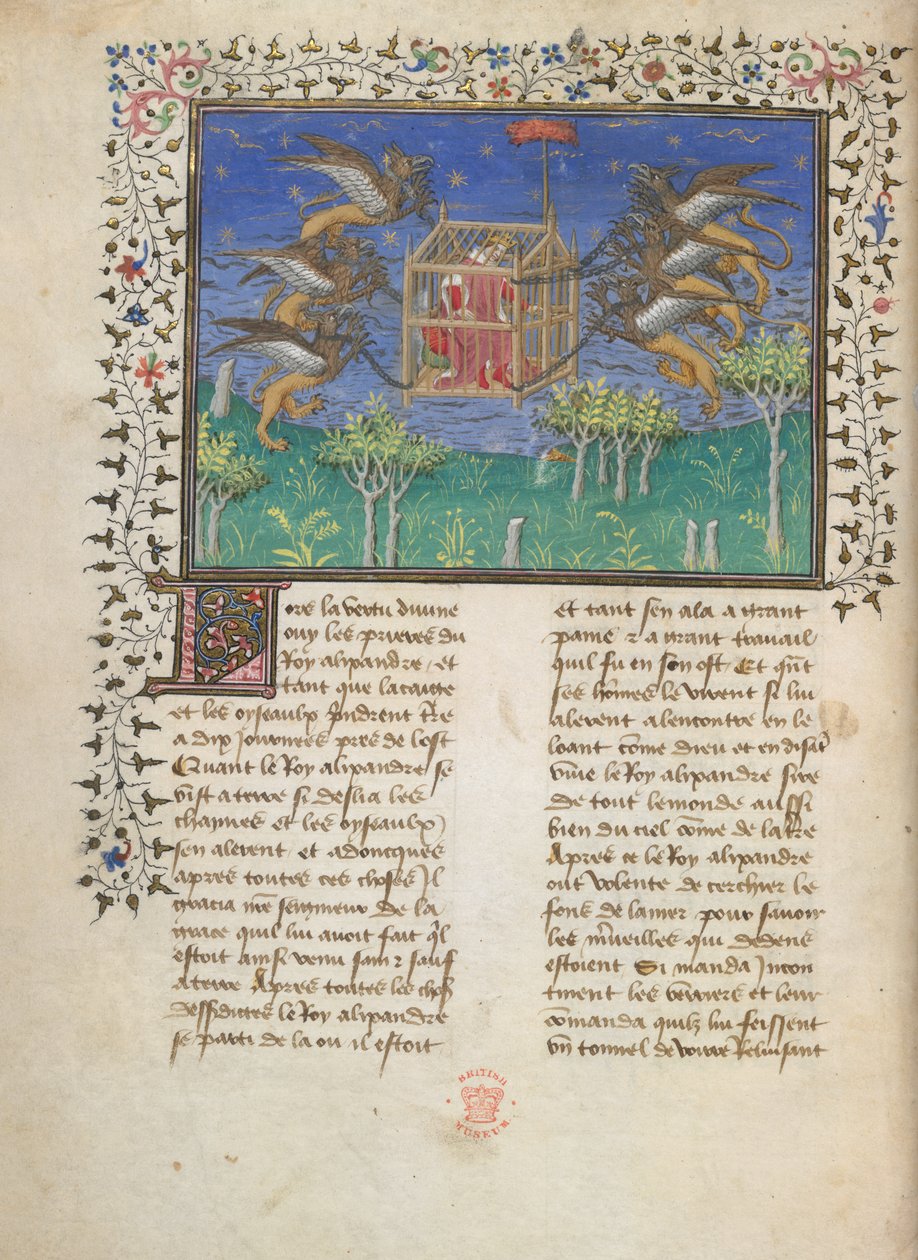 Lors la vertu divine
ouy les prieres du
Roy alixandre et
tant que la caige
et les oyseaulx Jndrent tre
a dix Journees pres de lost
Quant le Roy alixandre se
vist a terre si deslia les
chaines et les oyseaulx
sen alerent et adoncques
apres toutes ces choses Jl
gracia nre seigneur de la
grace quil lui avoit fait ql
estoit ainsi venu sain z sauf
a terre Apres toutes les chos
dessusdictes le Roy alixandre
se parti de la ou il estoit
Et tant sen ala a grant
paine z a grant travail
quil fu en son ost Et qnt
ses homes le virent si lui
alerent alencontre en le
loant come dieu et en disat
vive le Roy alixandre sire
de tout lemonde aussi
bien du ciel come de la tre
Apres ce le Roy alixandre
out volente de cerchier le
fons de la mer pour savoir
les mveilles qui dedens
estoient Si manda Jncon
tinent les verriers et leur
comanda quilz lui feissent
vn tonnel de voirre Reluisant
BRITISH
MUSEUM